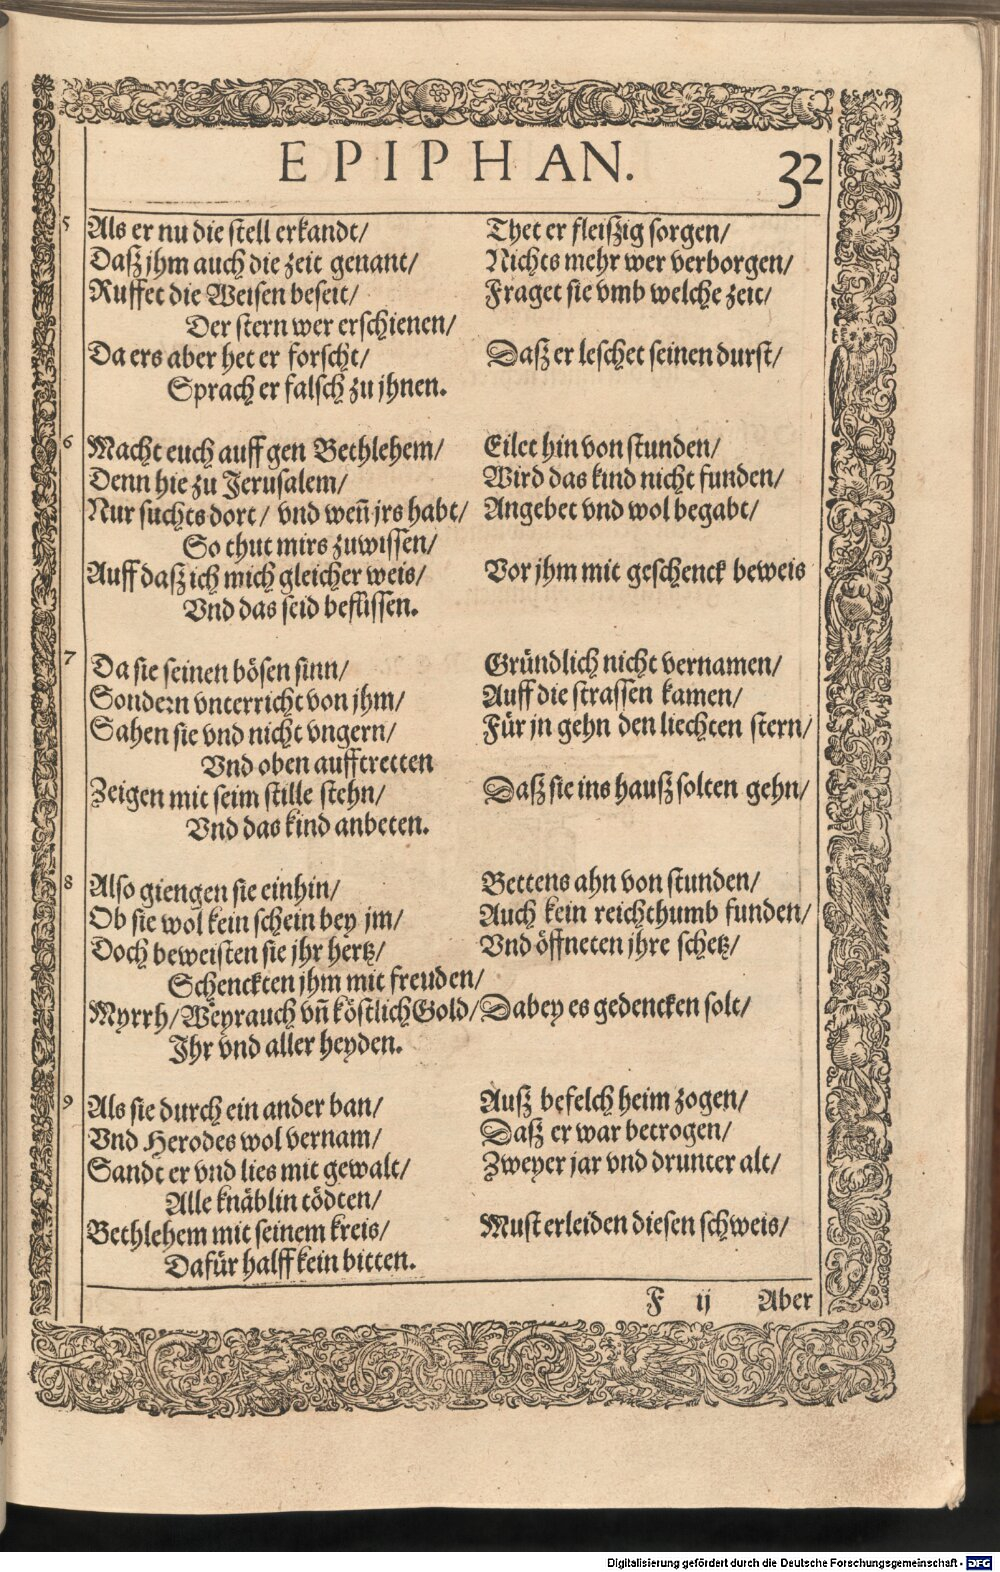 EPIPHAN. 32
5 Als er nu die stell erkandt/ Thet er fleiszig sorgen/
Dasz jhm auch die zeit genant/ Nichts mehr wer verborgen/
Ruffet die Weisen beseit/ Fraget sie vmb welche zeit/
Der stern wer erschienen/
Da ers aber het er forscht/ Dasz er leschet seinen durst/
Sprach er falsch zu jhnen.
6 Macht euch auff gen Bethlehem/ Eilet hin von stunden/
Denn hie zu Jerusalem/ Wird das kind nicht funden/
Nur suchts dort/ vnd weñ jrs habt/ Angebet vnd wol begabt/
So thut mirs zuwissen/
Auff dasz ich mich gleicher weis/ Vor jhm mit geschenck beweis
Vnd das seid beflissen.
7 Da sie seinen bösen sinn/ Gründlich nicht vernamen/
Sondern vnterricht von jhm/ Auff die strassen kamen/
Sahen sie vnd nicht vngern/ Für jn gehn den liechten stern/
Vnd oben aufftretten
Zeigen mit seim stille stehn/ Dasz sie ins hausz solten gehn/
Vnd das kind anbeten.
8 Also giengen sie einhin/ Bettens ahn von stunden/
Ob sie wol kein schein bey jm/ Auch kein reichthumb funden/
Doch beweisten sie jhr hertz/ Vnd öffneten jhre schetz/
Schenckten jhm mit freuden/
Myrrh/ Weyrauch vñ köstlich Gold/ Dabey es gedencken solt/
Ihr vnd aller heyden.
9 Als sie durch ein ander ban/ Ausz befelch heim zogen/
Vnd Herodes wol vernam/ Dasz er war betrogen/
Sandt er vnd lies mit gewalt/ Zweyer jar vnd drunter alt/
Alle knäblin tödten/
Bethlehem mit seinem kreis/ Must erleiden diesen schweis/
Dafür halff kein bitten.
F ij Aber
Digitalisierung gefördert durch die Deutsche Forschungsgemeinschaft - DFG